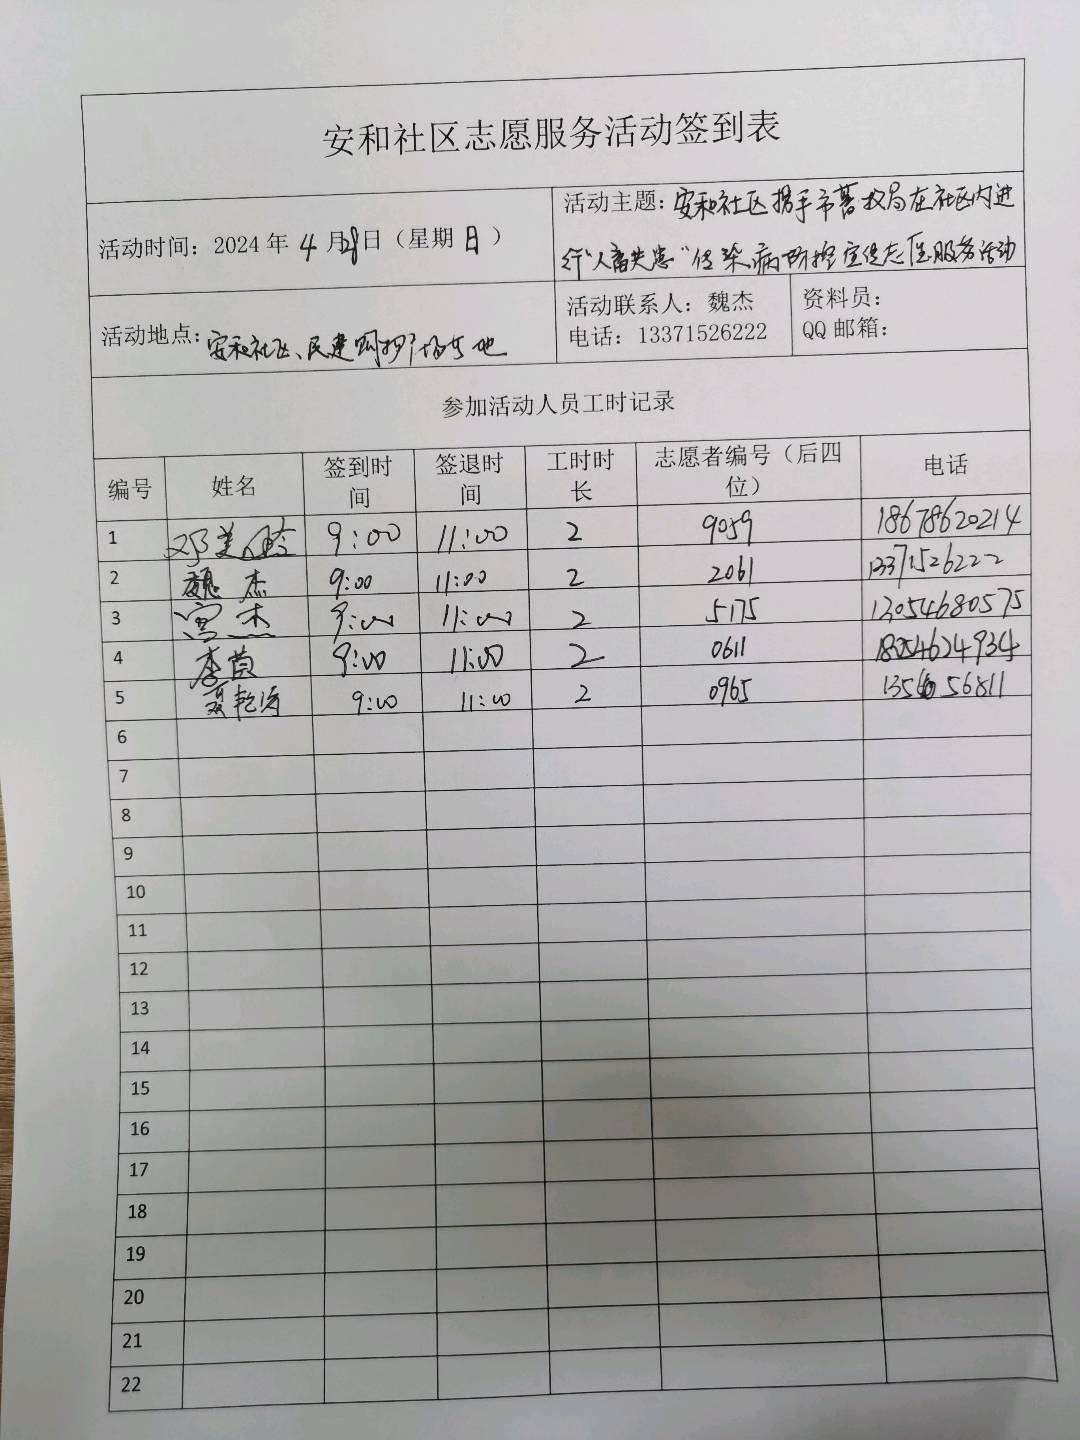 安和社区志愿服务活动签到表
活动时间：2024 年 4 月28日（星期日）
活动主题：安和社区携手市畜牧局在社区内进
行"人畜共患"传染病防控宣传志愿服务活动
活动地点：安和社区、民建
活动联系人：魏杰
电话：13371526222
资料员：
QQ 邮箱：
参加活动人员工时记录
编号 姓名 签到时间 签退时间 工时时长 志愿者编号（后四位） 电话
1 邓美玲 9:00 11:00 2 9059 18678620214
2 魏杰 9:00 11:00 2 2061 13371526222
3 宫杰 9:00 11:00 2 5175 13054680575
4 李茵 9:00 11:00 2 0611 18254624934
5 聂艳涛 9:00 11:00 2 0965
6
7
8
9
10
11
12
13
14
15
16
17
18
19
20
21
22